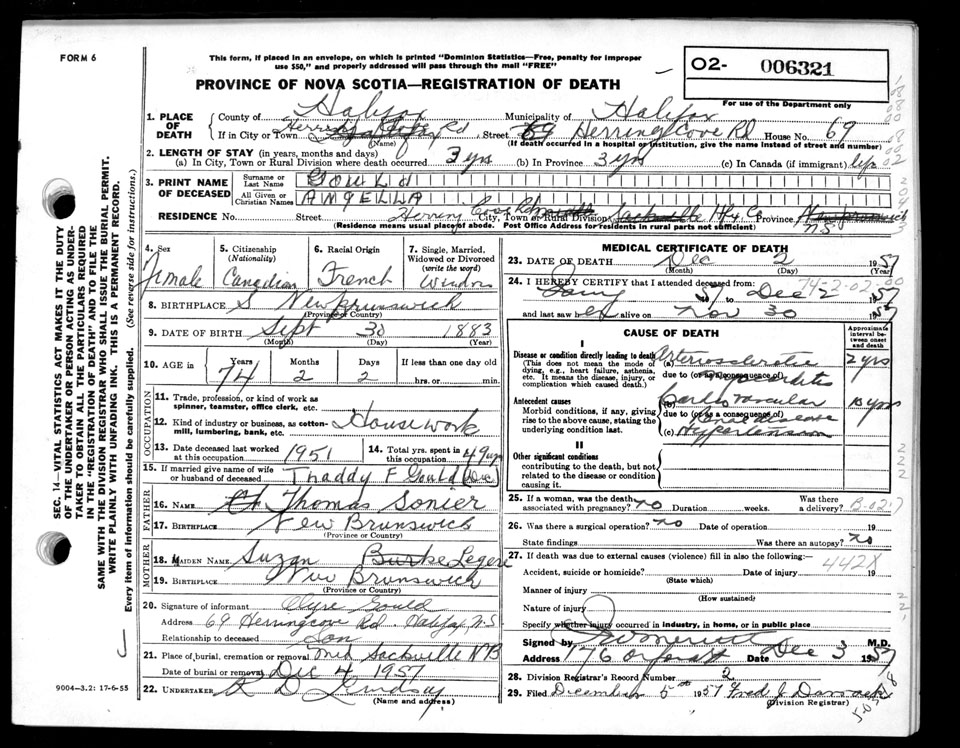 FORM 6
This form, if placed in an envelope, on which is printed "Dominion Statistics—Free, penalty for improper
use $50," and properly addressed will pass through the mail "FREE"
PROVINCE OF NOVA SCOTIA—REGISTRATION OF DEATH
O2- 006321
For use of the Department only
1. PLACE OF DEATH
County of Halifax Municipality of Halifax
If in City or Town Rd, Street 69 Herring Cove Rd House No. 69
(Name) (If death occurred in a hospital or institution, give the name instead of street and number)
2. LENGTH OF STAY (in years, months and days)
(a) In City, Town or Rural Division where death occurred 3 yrs (b) In Province 3 yrs (c) In Canada (if immigrant) life
3. PRINT NAME OF DECEASED
Surname or Last Name GOULD
All Given or Christian Names ANGELLA
RESIDENCE No. Street Herring Cove Rd City, Town or Rural Division Sackville Hfx Co Province New Brunswick N.S.
(Residence means usual place of abode. Post Office Address for residents in rural parts not sufficient)
4. Sex Female
5. Citizenship (Nationality) Canadian
6. Racial Origin French
7. Single, Married, Widowed or Divorced (write the word) Widow
8. BIRTHPLACE S New Brunswick
(Province or Country)
9. DATE OF BIRTH Sept 30 1883
(Month) (Day) (Year)
10. AGE in Years 74 Months 2 Days 2 If less than one day old
hrs. or min.
OCCUPATION
11. Trade, profession, or kind of work as
spinner, teamster, office clerk, etc.
12. Kind of industry or business, as cotton-
mill, lumbering, bank, etc. Housework
13. Date deceased last worked at this occupation 1951
14. Total yrs. spent in this occupation 49 yrs
15. If married give name of wife or husband of deceased Thaddy F Gould (Dec)
FATHER
16. NAME Thomas Sonier
17. BIRTHPLACE New Brunswick
(Province or Country)
MOTHER
18. MAIDEN NAME Suzan Burke Legere
19. BIRTHPLACE New Brunswick
(Province or Country)
20. Signature of informant Clyre Gould
Address 69 Herringcove Rd. Halifax, N.S.
Relationship to deceased Son
21. Place of burial, cremation or removal Mid Sackville NB
Date of burial or removal Dec 4 1957
22. UNDERTAKER R D Lindsay
(Name and address)
MEDICAL CERTIFICATE OF DEATH
23. DATE OF DEATH Dec 2 1957
(Month) (Day) (Year)
74-2-02-00
24. I HEREBY CERTIFY that I attended deceased from:
57 to Dec 2 1957
and last saw her alive on Nov 30 1957
CAUSE OF DEATH
Approximate interval between onset and death
I
Disease or condition directly leading to death
(This does not mean the mode of
dying, e.g., heart failure, asthenia,
etc. It means the disease, injury, or
complication which caused death.)
(a) Arteriosclerotic 2 yrs
due to (or as a consequence of)
Antecedent causes
Morbid conditions, if any, giving
rise to the above cause, stating the
underlying condition last.
(b) Cardio Vascular 10 yrs
due to (or as a consequence of)
Renal disease
(c) Hypertension
II
Other significant conditions
contributing to the death, but not
related to the disease or condition
causing it.
25. If a woman, was the death associated with pregnancy? No Duration weeks. Was there a delivery?
26. Was there a surgical operation? No Date of operation 19
State findings Was there an autopsy? No
27. If death was due to external causes (violence) fill in also the following:—
442X
Accident, suicide or homicide? Date of injury 19
(State which)
Manner of injury
(How sustained)
Nature of injury
Specify whether injury occurred in industry, in home, or in public place
Signed by M.D.
Address 176 Date Dec 3 1957
28. Division Registrar's Record Number 2
29. Filed December 5th 1957 Fred J
(Division Registrar)
SEC. 14—VITAL STATISTICS ACT MAKES IT THE DUTY
OF THE UNDERTAKER OR PERSON ACTING AS UNDER-
TAKER TO OBTAIN ALL THE PARTICULARS REQUIRED
IN THE "REGISTRATION OF DEATH" AND TO FILE THE
SAME WITH THE DIVISION REGISTRAR WHO SHALL ISSUE THE BURIAL PERMIT.
WRITE PLAINLY WITH UNFADING INK. THIS IS A PERMANENT RECORD.
Every item of information should be carefully supplied. (See reverse side for instructions.)
9004—3.2: 17-6-55